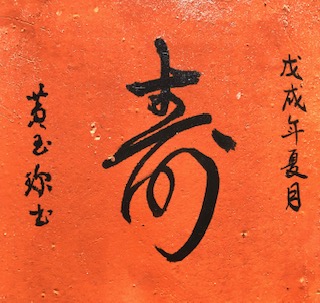 戊戌年夏月
寿
黄玉书